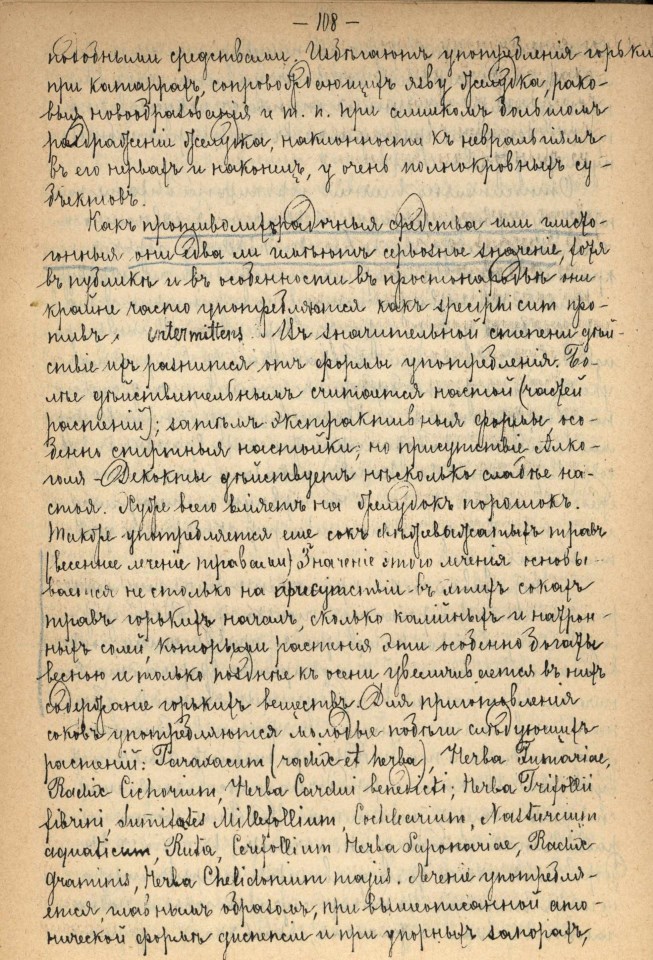 — 108 —
подобными средствами. Избѣгаютъ употребленія горьки
при катаррахъ, сопровождающихъ язву желудка, рако-
выя новообразованія и т. п. при слишкомъ большомъ
раздраженіи желудка, наклонности къ невральгіямъ
въ его нервахъ и наконецъ, у очень полнокровныхъ су-
бъектовъ.
Какъ противолихорадочныя средства или глисто-
гонныя они едва ли имѣютъ серьозное значеніе, хотя
въ публикѣ и въ особенности въ простонародьѣ они
крайне часто употребляются какъ speciphicum про-
тивъ intermittens. Въ значительной степени дѣй-
ствіе ихъ разнится отъ формы употребленія. Бо-
лѣе дѣйствительнымъ считается настой (частей
растеній); затѣмъ экстрактивныя формы, осо-
бенно спиртныя настойки; но присутствіе Алко-
голя - Декокты дѣйствуетъ нѣсколько слабѣе на-
стоя. Хуже всего вліяетъ на желудокъ порошокъ.
Также употребляется еще сокъ свѣжевыжатыхъ травъ
(весеннее леченіе травами) Значеніе этого леченія основы-
вается не столько на присутствіи въ этихъ сокахъ
травъ горькихъ началъ, сколько калійныхъ и натрон-
ныхъ солей, которыми растенія эти особенно богаты
весною и только позднѣе къ осени увеличивается въ нихъ
содержаніе горькихъ веществъ. Для приготовленія
соковъ употребляются молодые побѣги слѣдующихъ
растеній: Taraxacum (radix et herba), Herba Fumariae,
Radix Cichorium, Herba Cardui benedicti; Herba Trifollii
fibrini, Sumitates Millefollium, Cochlearium, Nasturcium
aquaticum, Ruta, Cerifollium Herba Saponariae, Radix
graminis, Herba Chelidonium majus. Леченіе употребля-
ется, главнымъ образомъ, при вышеописанной ато-
нической формѣ диспепсіи и при упорныхъ запорахъ,